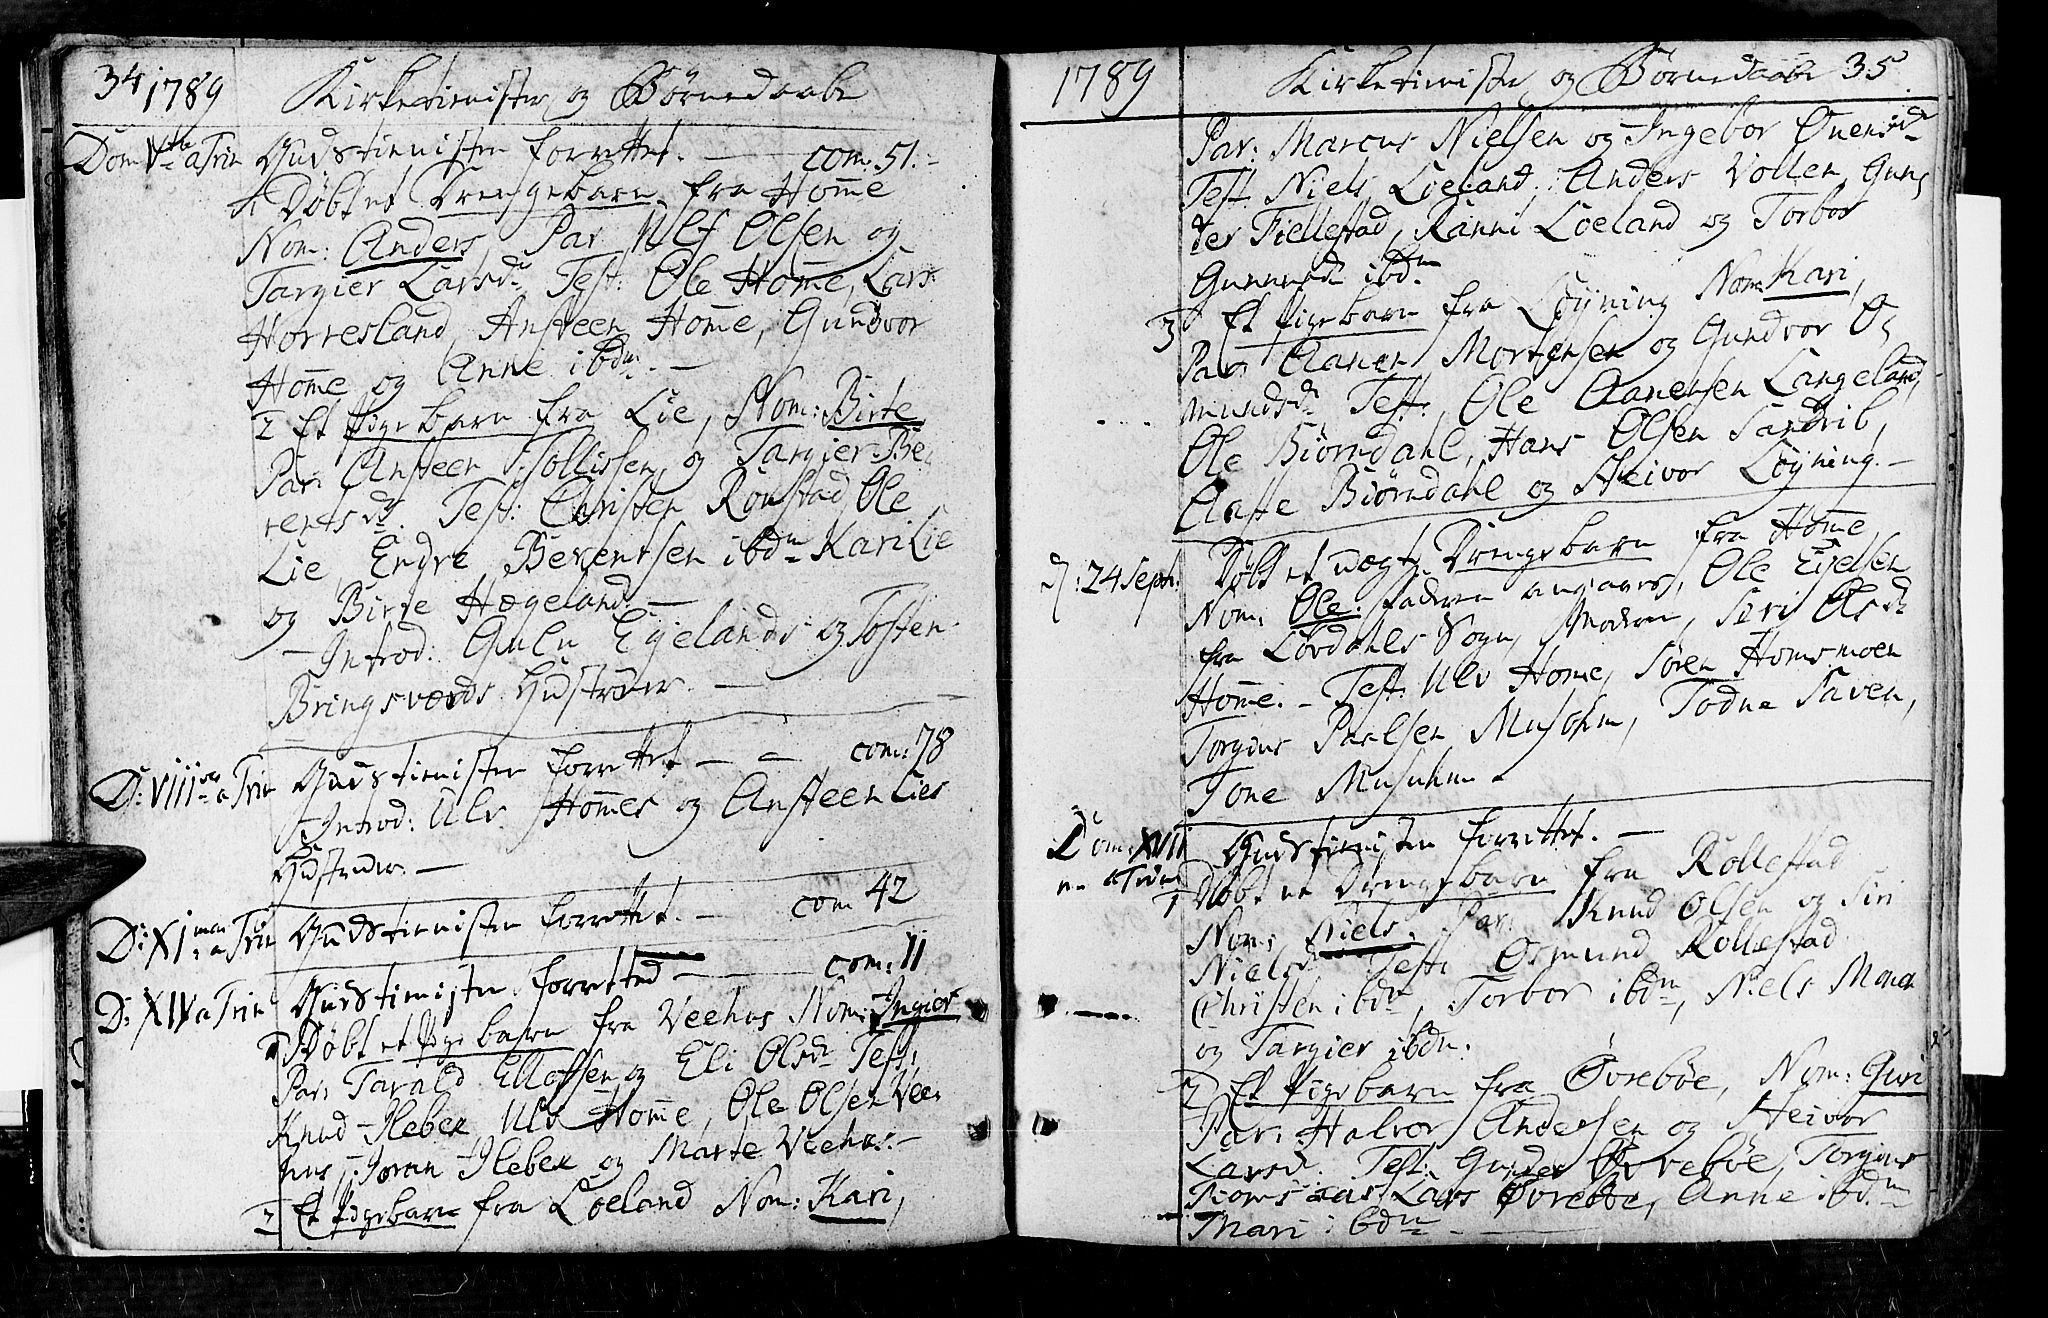 34 1789 Kirketienister og Børnedaabe
Dom: Vta a Trin Gudstienisten forrettet. — com. 51. -
1 Døbt et Drengebarn fra Homme
Nom: Anders, Par: Ulf Olsen og
Targier Larsd. Test: Ole Homme, Lars
Horresland, Ansteen Homme, Gundvor
Homme og Anne ibdm. —
2 Et Pigebarn fra Lie, Nom: Birte
Par: Ansteen Tollissen og Targier Be-
rentsd. Test: Christen Romstad Ole
Lie, Endre Berentsen ibdm Kari Lie
og Birte Hægeland. —
- Introd: Gulu Eyelands og Tosten
Bringsværds Hustruer. —
D: VIII a Trin Gudstienisten forrettet — com: 78
Introd: Ulv Hommes og Ansteen Lies
Hustruer. —
D: XI a Trin Gudstienisten forrettet. — com 42
D: XIV a Trin Gudstienisten forretted — com: 11
1 Døbt et Pigebarn fra Veehus Nom: Ingier
Par: Tarald Ellefsen og Eli Olsd. Test:
Knud Ilebek Ulv Homme, Ole Olsen Vee-
hus, Joran Ilebek og Marte Veehus. —
2 Et Pigebarn fra Loeland Nom: Kari,
1789 Kirketienister og Børnedaabe 35
Par: Marcus Nielsen og Ingebor Ovensd.
Test: Niels Loeland, Anders Vollen, Gun-
der Fiellestad, Ranni Loeland og Torbor
ibdm.
3 Et Pigebarn fra Løyning Nom: Kari,
Par: Aanen Mortensen og Gundvor O-
mundsd. Test: Ole Aanensen Langeland,
Ole Biørndahl, Hans Olsen Sandrib,
Aaste Biørndahl og Heivor Løyning. —
d: 24 Sept. Døbt et uægte Drengebarn fra Homme
Nom: Ole. Faderen angaves, Ole
fra Lovdahls Sogn, Moderen, Siri Olsd.
Homme. - Test: Ulv Home, Søren Homsmoen
Torgius Paalsen Musohm, Todne Saven,
Tone Musuhm.
Dom: XVII
a Trin Gudstienisten forrettet. —
1 Døbt et Drengebarn fra Rollestad
Nom: Niels, Par: Knud Olsen og Siri
Nielsd. Test: Osmund Rollestad
Christen ibdm, Torbor ibdm, Niels Moen
og Targier ibdm.
2 Et Pigebarn fra Øvrebøe, Nom: Guri
Par: Halvor Andersen og Heivor
Larsd. Test: Gunder Øvrebøe, Torgius
Lars Øvrebøe, Anne ibdm
Mari ibdm —